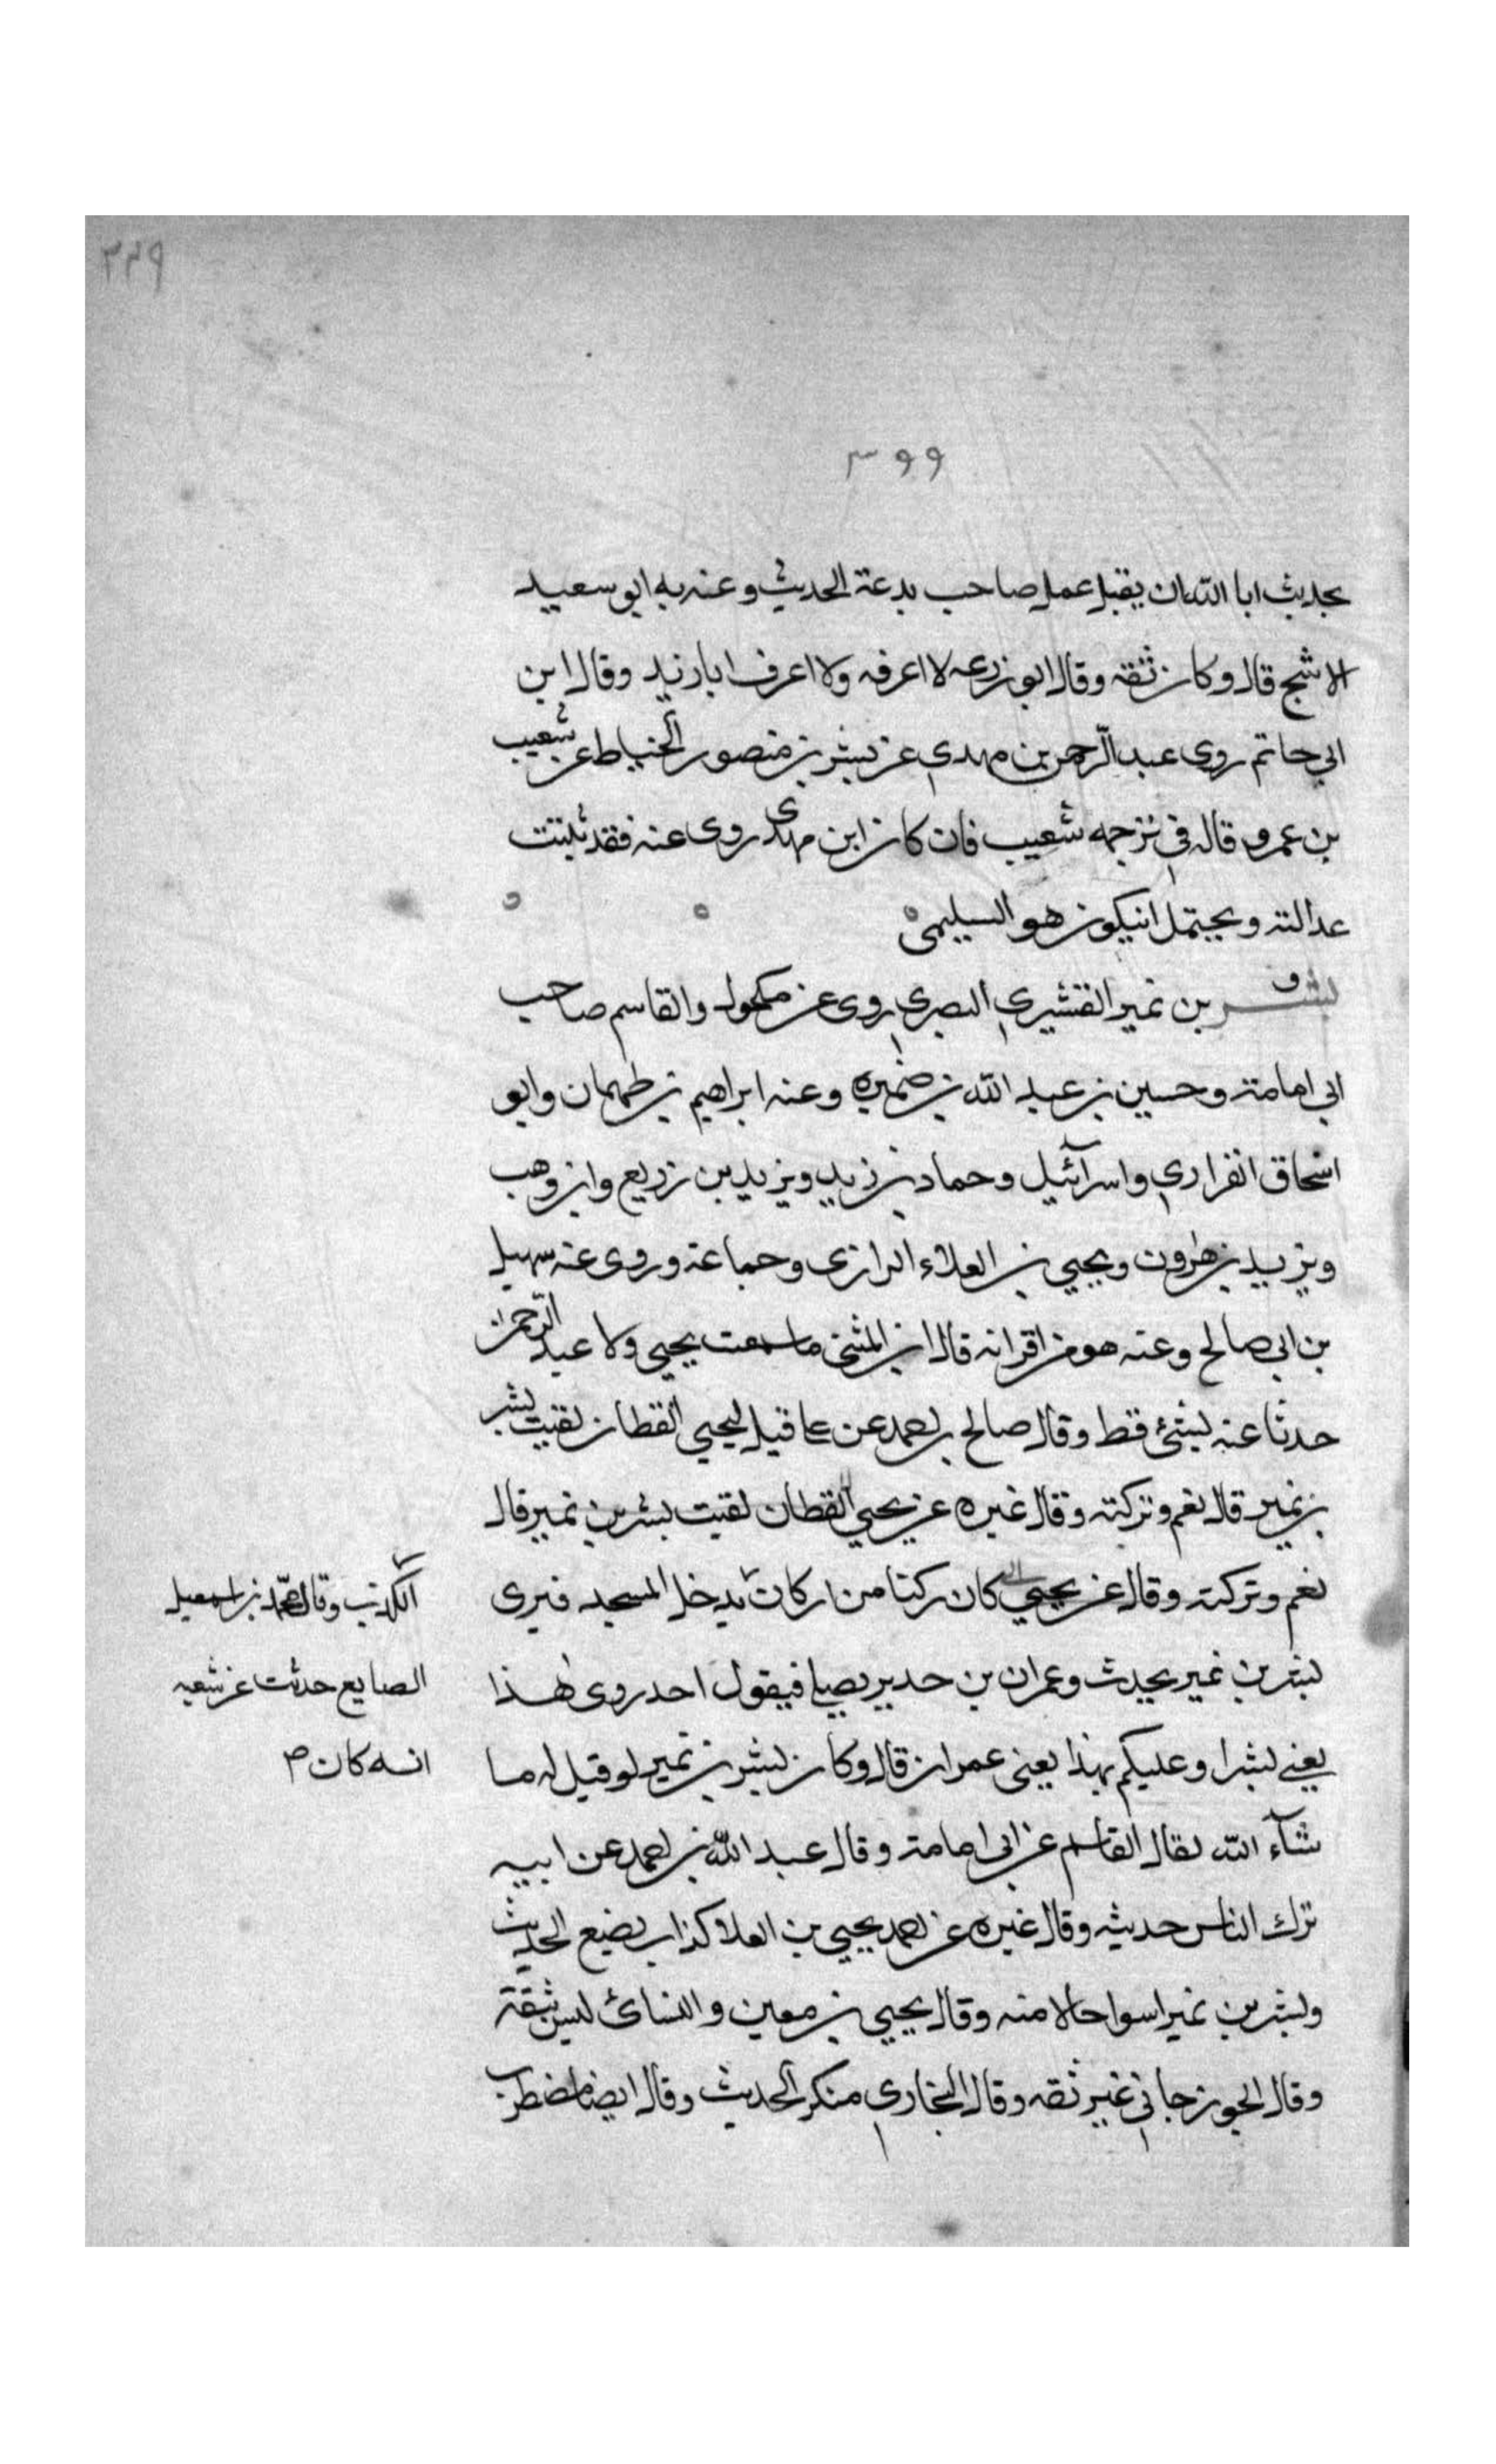 ٣٢٩
٣٩٩
بحديث ابا الله ان يقبل عمل صاحب بدعة الحديث وعنه به ابو سعيد
الاشج قال وكان ثقه وقال ابو زرعه لا اعرفه ولا اعرف ابا زيد وقال ابن
ابي حاتم روى عبد الرحمن بن مهدي عن بشر بن منصور الخياط عن شعيب
بن عمرو قاله في ترجمه شعيب فان كان ابن مهدى روى عنه فقد ثبتت
عدالته ويحتمل انيكون هو السليمى ه ه ه
بشر بن نمير القشيري البصري روى عن مكحول والقاسم صاحب
ابي امامة وحسين بن عبد الله بن ضميره وعنه ابراهيم بن طهمان وابو
اسحاق الفزاري واسرآئيل وحماد بن زيد ويزيد بن زريع وابن وهب
ويزيد بن هرون ويحيي بن العلاء الرازى وجماعة وروى عنه سهيل
بن ابي صالح وعنه هو من اقرانه قال ابن المثنى ما سمعت يحيي ولا عبد الرحمن
حدثا عنه بشئ قط وقال صالح بن احمد عن علي قيل ليحيي القطان لقيت بشر
بن نمير قال نعم وتركته وقال غيره عن يحيي القطان لقيت بشر بن نمير قال
نعم وتركته وقال عن يحيي كان ركنا من اركان يدخل المسجد فيرى
الكذب وقال محمد بن اسمعيل
بشر بن نمير يحدث وعمران بن حدير يصلي فيقول احد روى هذا
الصايع حدثت عن شعبه
يعني بشرا وعليكم بهذا يعنى عمران قال وكان بشر بن نمير لو قيل له ما
انه كان ص
شآء الله لقال القاسم عن ابى امامة وقال عبد الله بن احمد عن ابيه
ترك الناس حديثه وقال غيره عن احمد يحيي بن العلا كذاب يضع الحديث
وبشر بن نمير اسوا حالا منه وقال يحيي بن معين والنسائ ليس بثقة
وقال الجوزجاني غير ثقه وقال البخاري منكر الحديث وقال ايضا مضطرب